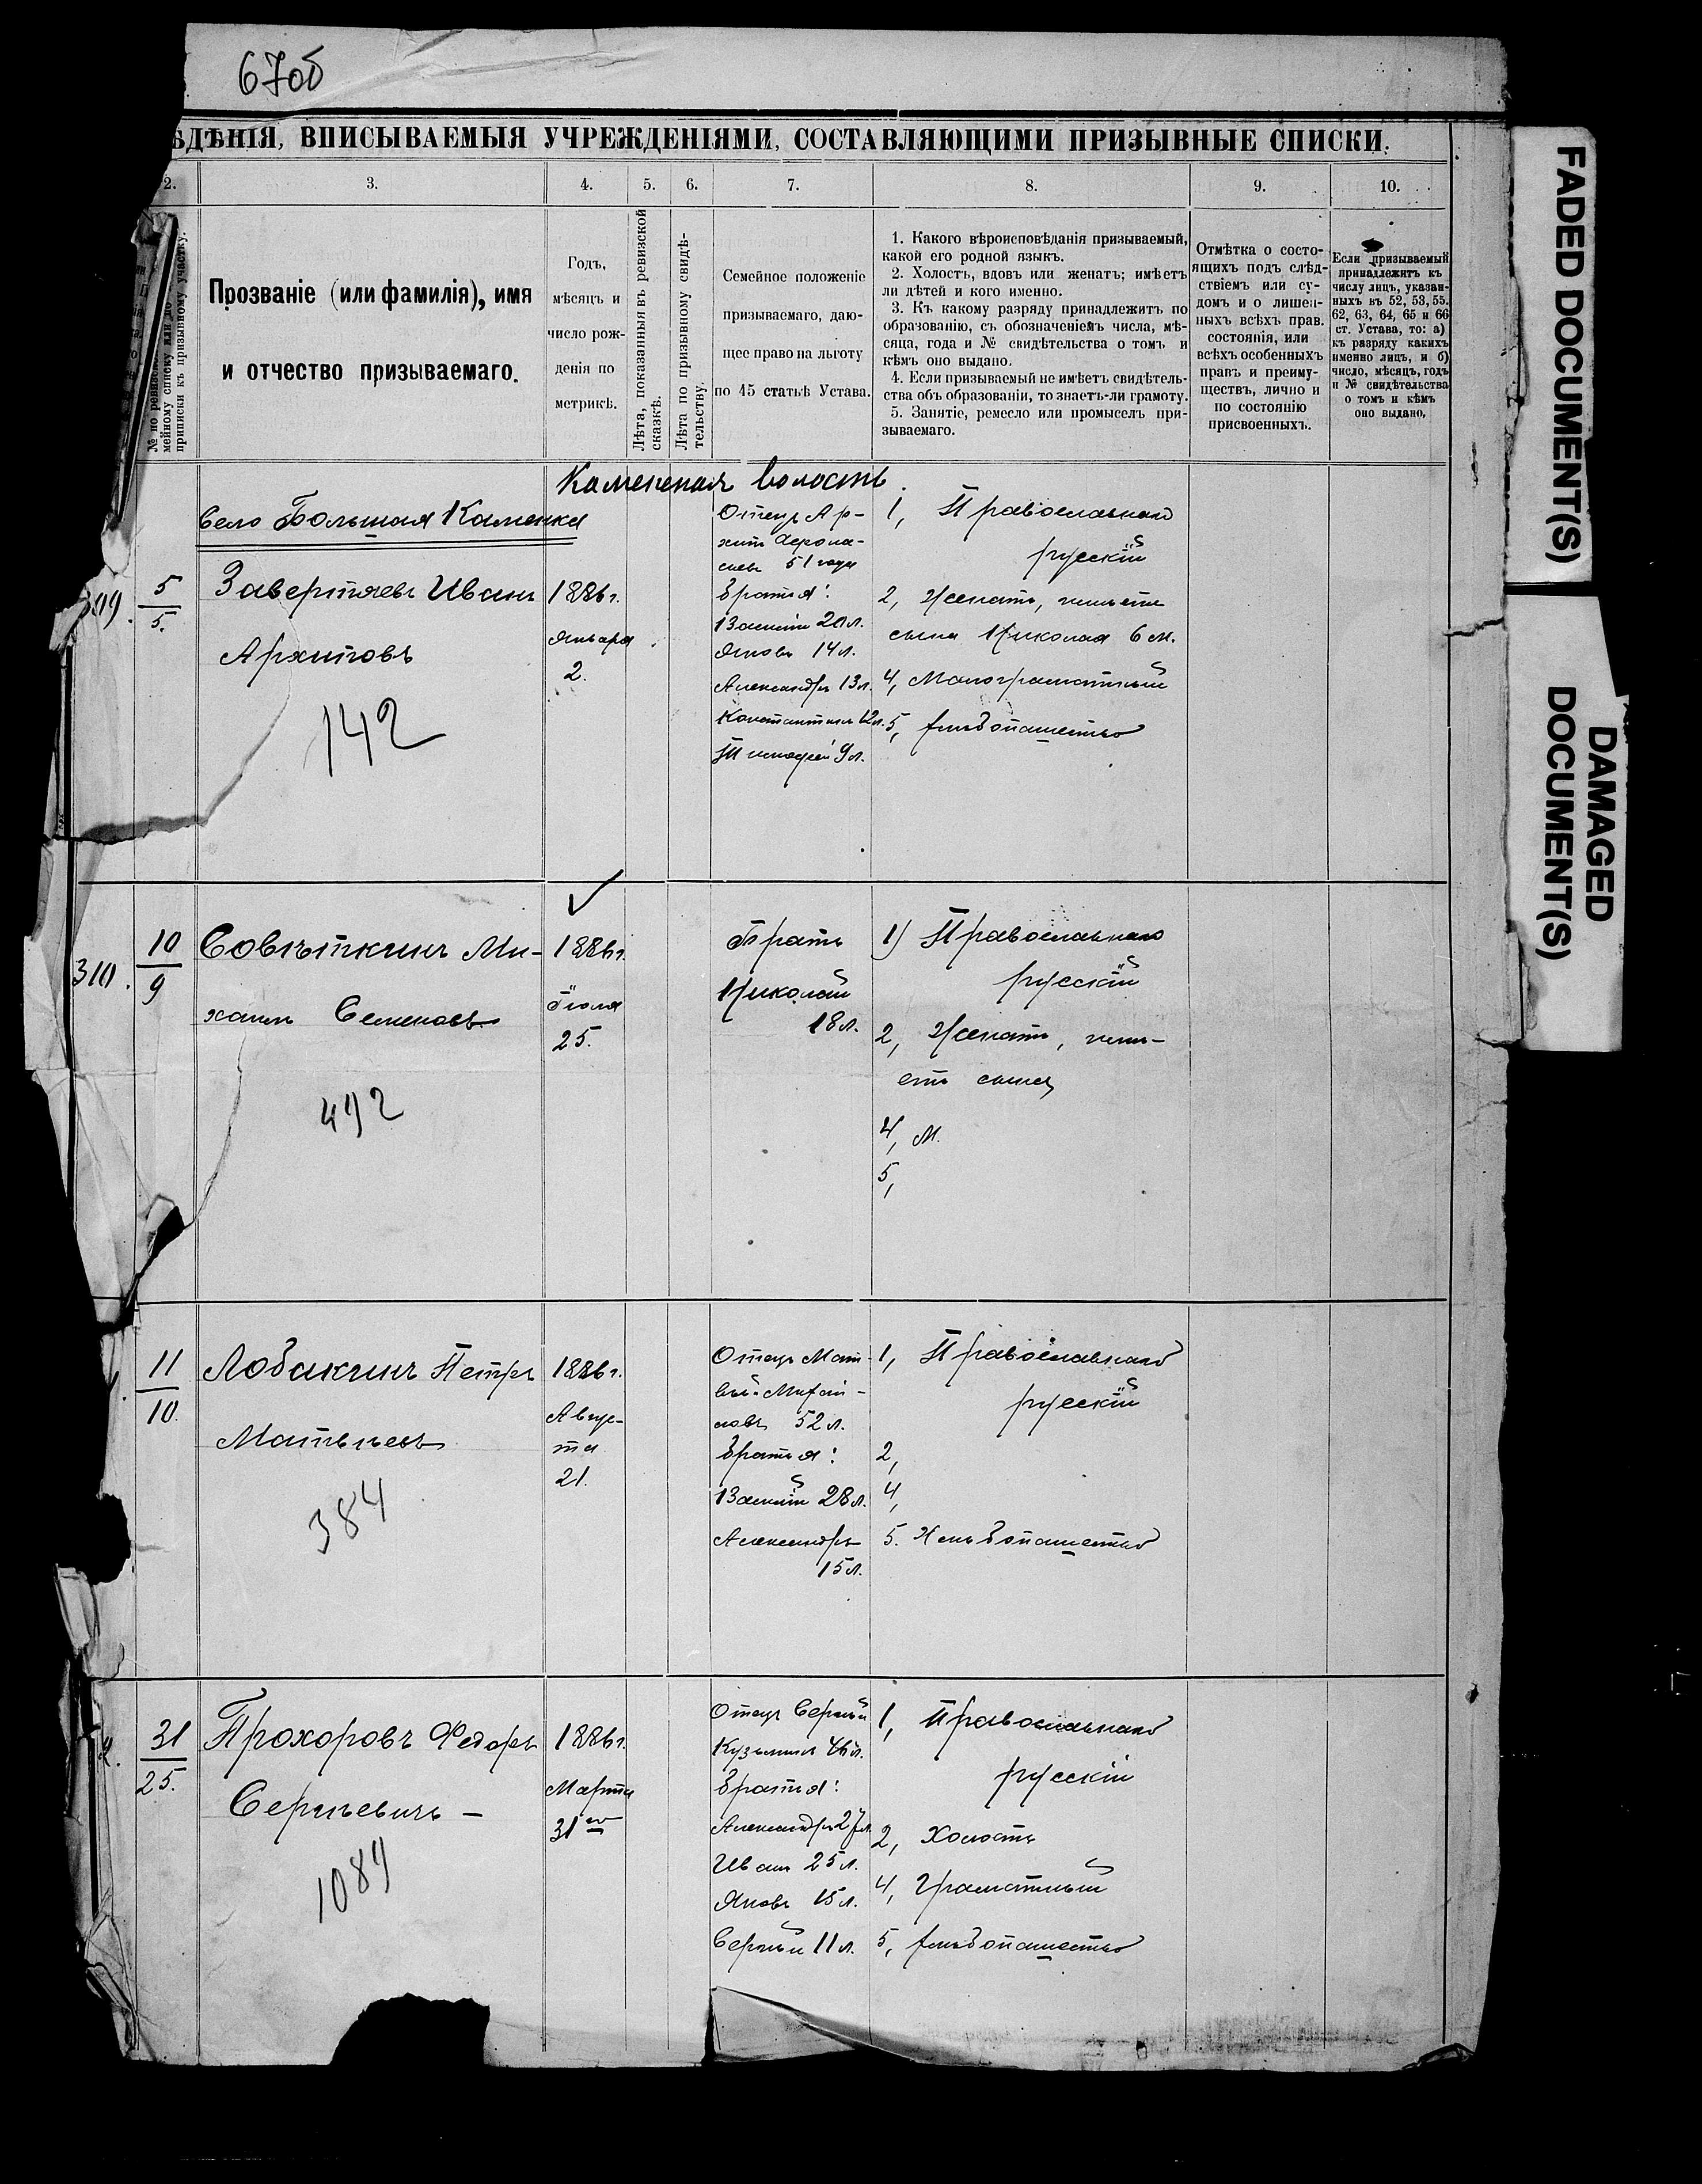 67об
ѢДѢНІЯ, ВПИСЫВАЕМЫЯ УЧРЕЖДЕНІЯМИ, СОСТАВЛЯЮЩИМИ ПРИЗЫВНЫЕ СПИСКИ.
2. 3. 4. 5. 6. 7. 8. 9. 10.
мейному списку или по
приписки къ призывному участку.
Прозваніе (или фамилія), имя
и отчество призываемаго.
Годъ,
мѣсяцъ и
число рож-
денія по
метрикѣ.
Лѣта, показанныя въ ревизской
сказкѣ.
Лѣта по призывному свидѣ-
тельству.
Семейное положеніе
призываемаго, даю-
щее право на льготу
по 45 статьѣ Устава.
1. Какого вѣроисповѣданія призываемый,
какой его родной языкъ.
2. Холостъ, вдовъ или женатъ; имѣетъ
ли дѣтей и кого именно.
3. Къ какому разряду принадлежитъ по
образованію, съ обозначеніемъ числа, мѣ-
сяца, года и № свидѣтельства о томъ и
кѣмъ оно выдано.
4. Если призываемый не имѣетъ свидѣтель-
ства объ образованіи, то знаетъ-ли грамоту.
5. Занятіе, ремесло или промыселъ при-
зываемаго.
Отмѣтка о состо-
ящихъ подъ слѣд-
ствіемъ или су-
домъ и о лишен-
ныхъ всѣхъ прав.
состоянія, или
всѣхъ особенныхъ
правъ и преиму-
ществъ, лично и
по состоянію
присвоенныхъ.
Если призываемый
принадлежитъ къ
числу лицъ, указан-
ныхъ въ 52, 53, 55.
62, 63, 64, 65 и 66
ст. Устава, то: а)
къ разряду какихъ
именно лицъ, и б)
число, мѣсяцъ, годъ
и № свидѣтельства
о томъ и кѣмъ
оно выдано.
Каменская волость.
Село Большая Каменка
5
5.
Завертяевъ Иванъ
Архиповъ
142
1886 г.
Января
2.
Отецъ Ар-
хипъ
51 года
Братья:
Василій 20 л.
Яковъ 14 л.
Александръ 13 л.
Константинъ 12 л.
Тимофей 9 л.
1, Православнаго
русскій
2, Женатъ, имѣетъ
сына Николая 6 м.
4, Малограмотный
5, хлѣбопашество
310.
10
9
Совѣткинъ Ми-
хаилъ Семеновъ
492
1886 г.
Іюля
25.
Братъ
Николай
18 л.
1) Православнаго
русскій
2, Женатъ, имѣ-
етъ сына
4, М.
5,
11
10.
Лобакинъ Петръ
Матвѣевъ
384
1886 г.
Авгус-
та
21.
Отецъ Мат-
вѣй Михай-
ловъ 52 л.
Братья:
Василій 28 л.
Александръ
15 л.
1, Православнаго
русскій
2,
4,
5. Хлѣбопашество
31
25.
Прохоровъ Федоръ
Сергѣевичъ -
1089
1886 г.
Марта
31го
Отецъ Сергѣй
Кузьминъ 46 л.
Братья:
Александръ 27 л.
Иванъ 25 л.
Яковъ 15 л.
Сергѣй 11 л.
1, Православнаго
русскій
2, Холостъ
4, Грамотный
5, хлѣбопашество
FADED DOCUMENT(S)
DAMAGED
DOCUMENT(S)